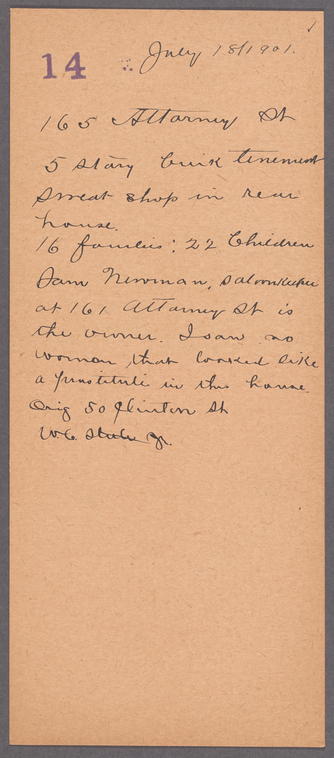 14
July 18/1901.
165 Attorney St
5 story brick tenement
Sweat shop in rear
house.
16 families; 22 Children
Sam Newman, saloonkeeper
at 161 Attorney St is
the owner. I saw no
woman that looked like
a prostitute in this house.
50 Clinton St
W.C. Jr.